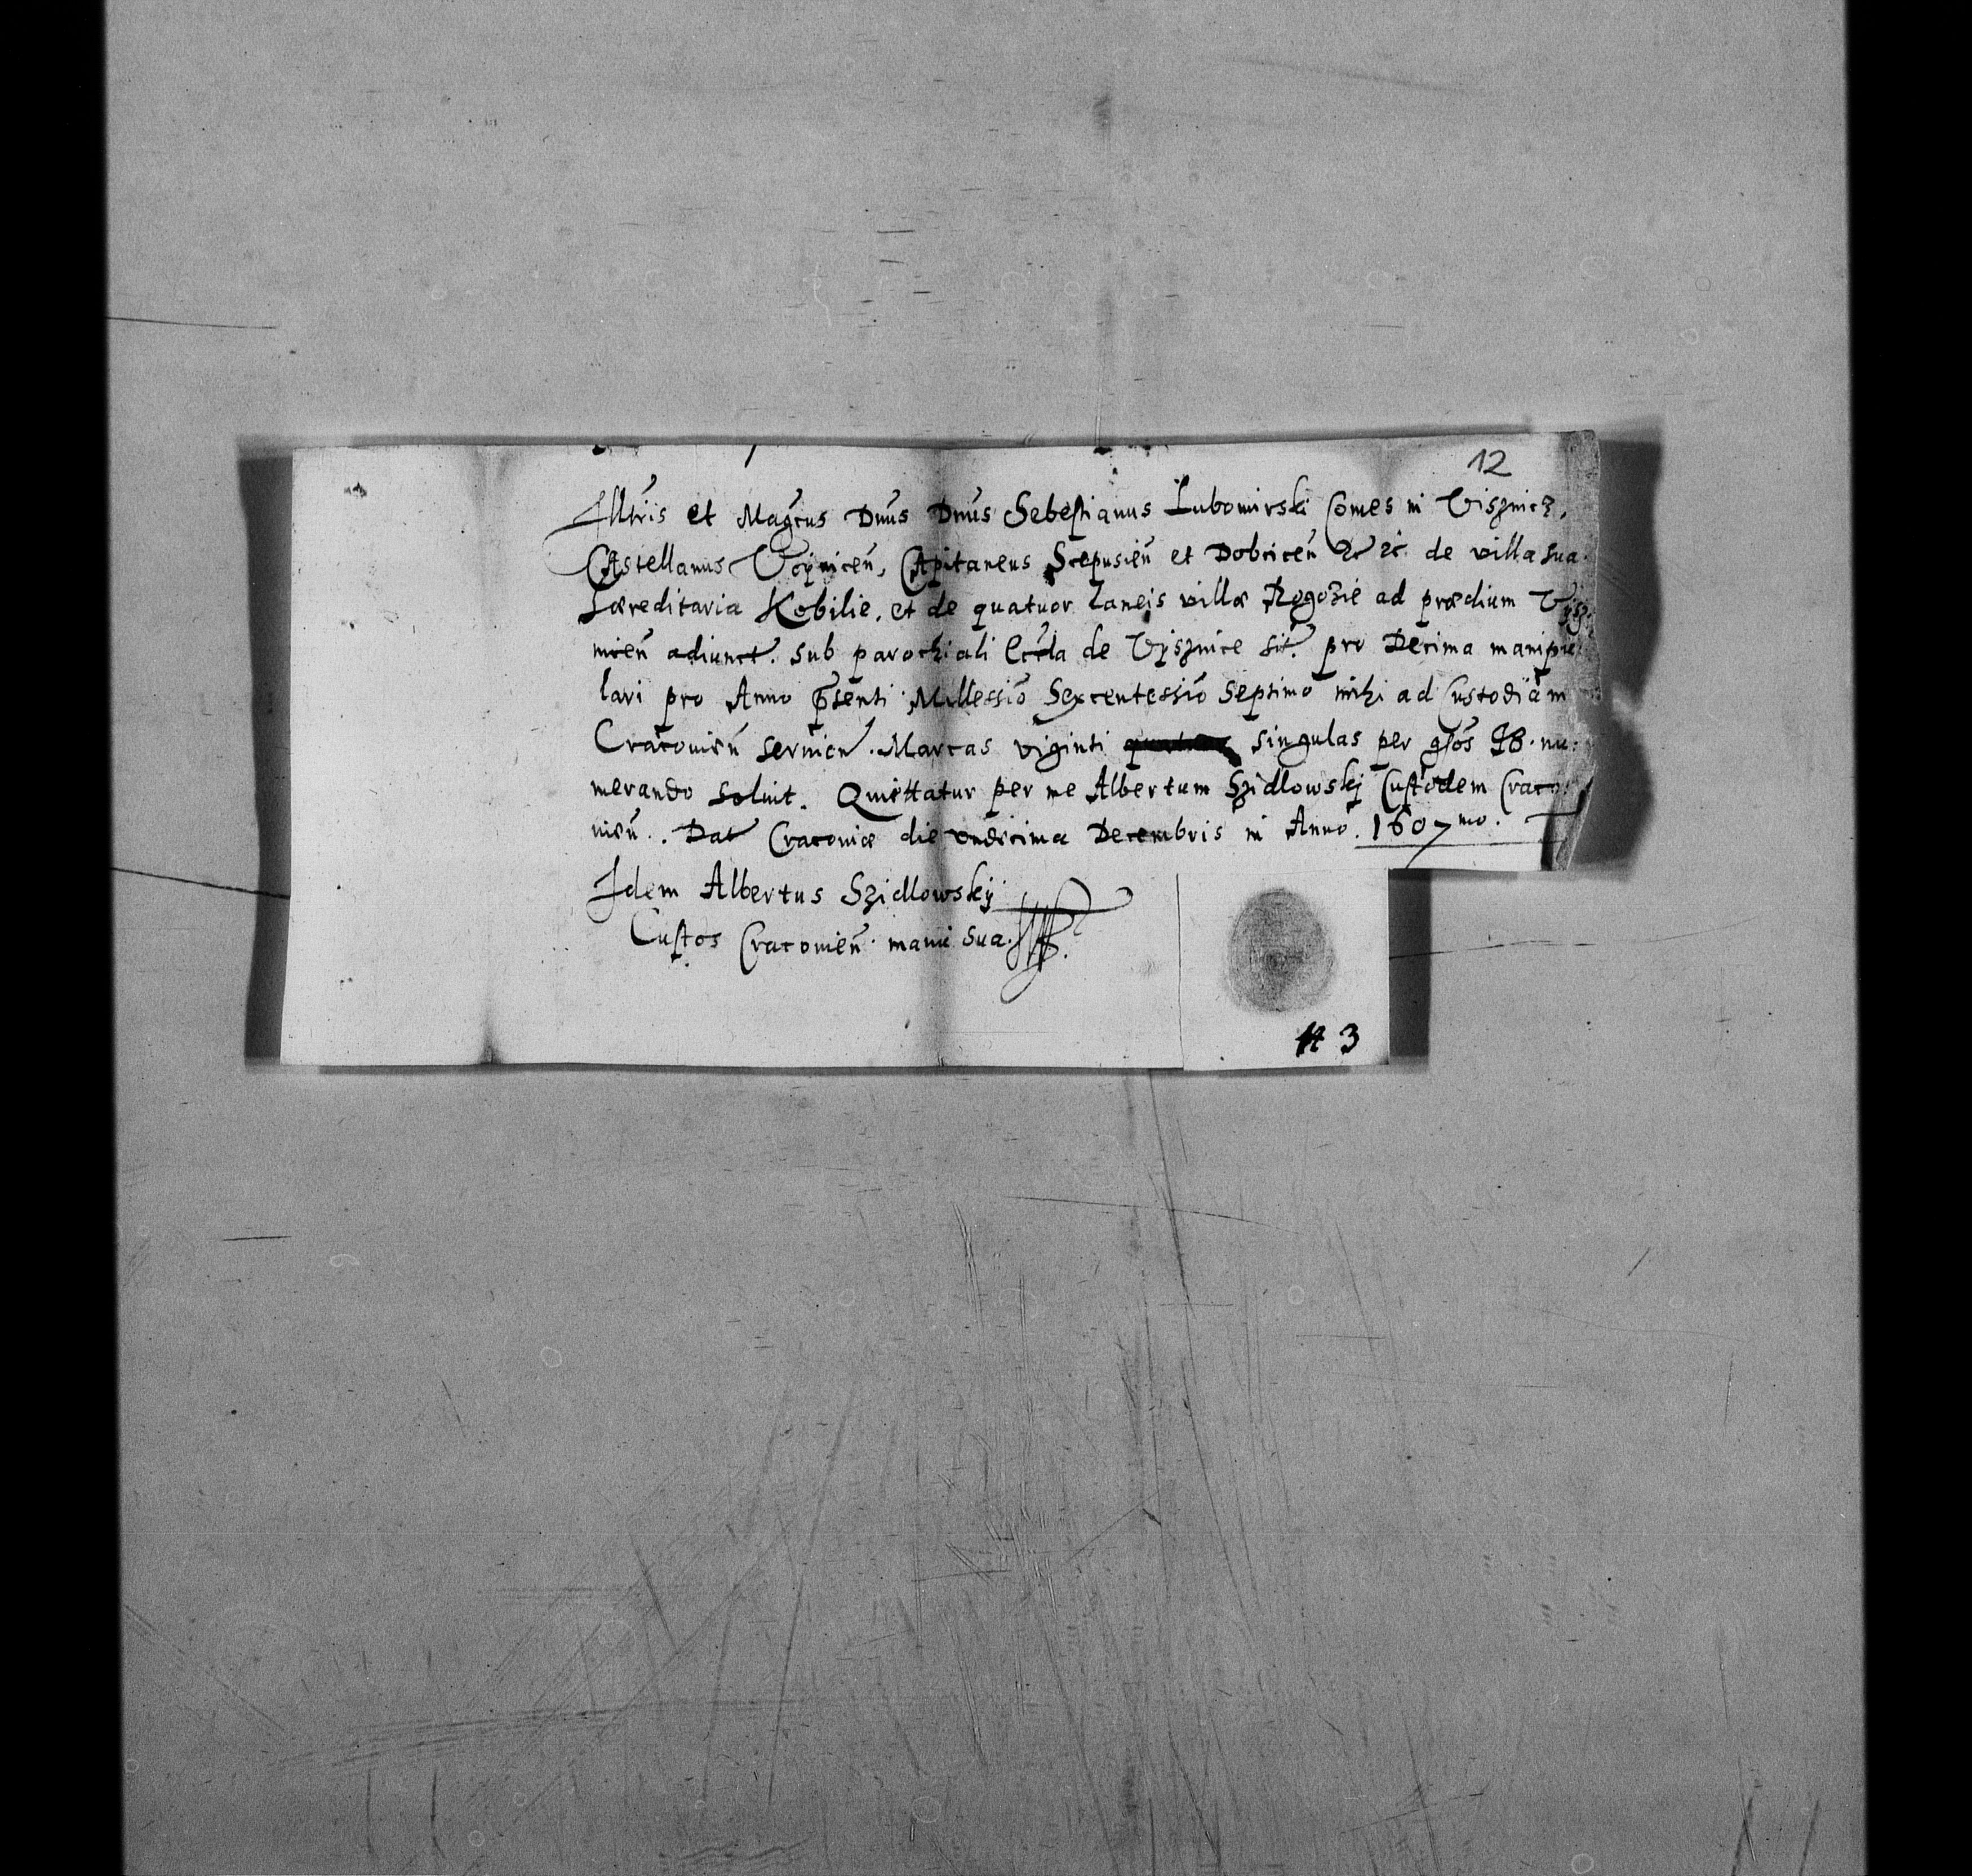 12
Illris et Magcus Dnus Dnus Sebestianus Lubomirski Comes in Visznicz,
Castellanus Voynicen, Capitaneus Scepusien et Dobcicen &c &c. de villa sua
hæreditaria Kobilie, et de quatuor laneis villæ Rogozie ad prædium Vysz
nicen adiunct. sub parochiali Eccla de Vysznice sit. pro Decima manipu
lari pro Anno pñsenti Millessio Sexcentessio Septimo mihi ad Custodiam
Cracovien servien. Marcas viginti singulas per gros 48. nu:
merando solvit. Quittatur per me Albertum Szidlowskj Custodem Craco
vien. Dat Cracoviæ die vndecima Decembris in Anno. 1607mo.
Idem Albertus Szidlowskij
Custos Cracovien. manu sua.
3